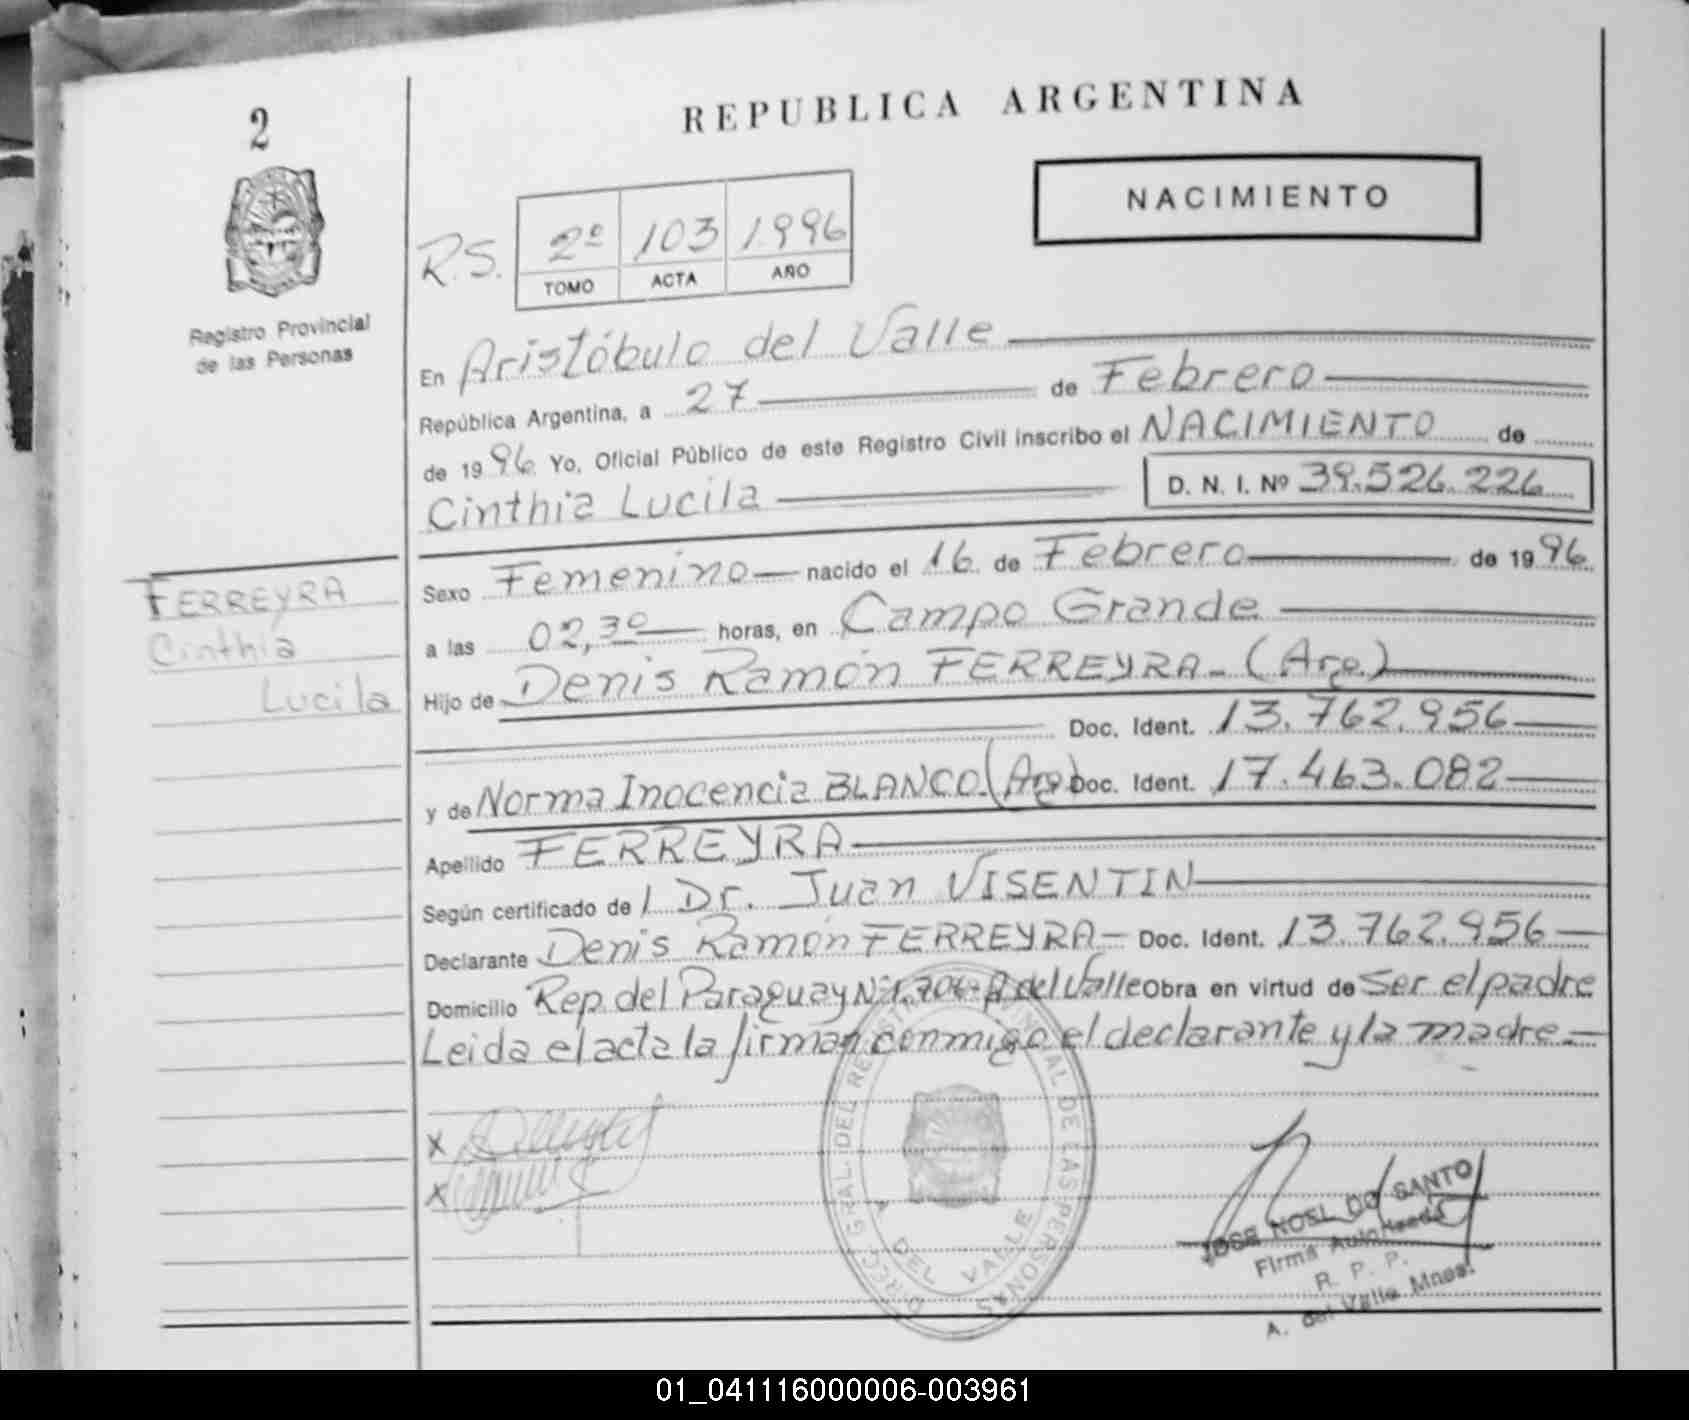 2
REPUBLICA ARGENTINA
NACIMIENTO
R.S. 2º 103 1996
TOMO ACTA AÑO
Registro Provincial
de las Personas
En Aristóbulo del Valle
República Argentina, a 27 de Febrero
de 1996 Yo, Oficial Público de este Registro Civil inscribo el NACIMIENTO de
Cinthia Lucila D. N. I. Nº 39.526.226
FERREYRA
Cinthia
Lucila
Sexo Femenino nacido el 16 de Febrero de 1996
a las 02,30 horas, en Campo Grande
Hijo de Denis Ramón FERREYRA - (Arg.)
Doc. Ident. 13.762.956
y de Norma Inocencia BLANCO. (Arg.) Doc. Ident. 17.463.082
Apellido FERREYRA
Según certificado de / Dr. Juan VISENTIN
Declarante Denis Ramón FERREYRA - Doc. Ident. 13.762.956
Domicilio Rep. del Paraguay Nº del Valle Obra en virtud de Ser el padre
Leida el acta la firman conmigo el declarante y la madre.-
X
X
DIREC. GRAL. DEL REGISTRO PROVINCIAL DE LAS PERSONAS
A. DEL VALLE
JOSE NOEL DO SANTO
Firma Autorizada
R. P. P.
A. del Valle Mnes.
01_041116000006-003961